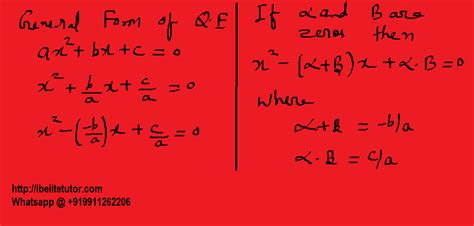 General Form of Q.E
ax² + bx + c = 0
x² + b/a x + c/a = 0
x² - (-b/a)x + c/a = 0
If α and β are
zeros then
x² - (α+β)x + α.β = 0
where
α+β = -b/a
α.β = c/a
http://ibelitetutor.com
Whatsapp @ +919911262206